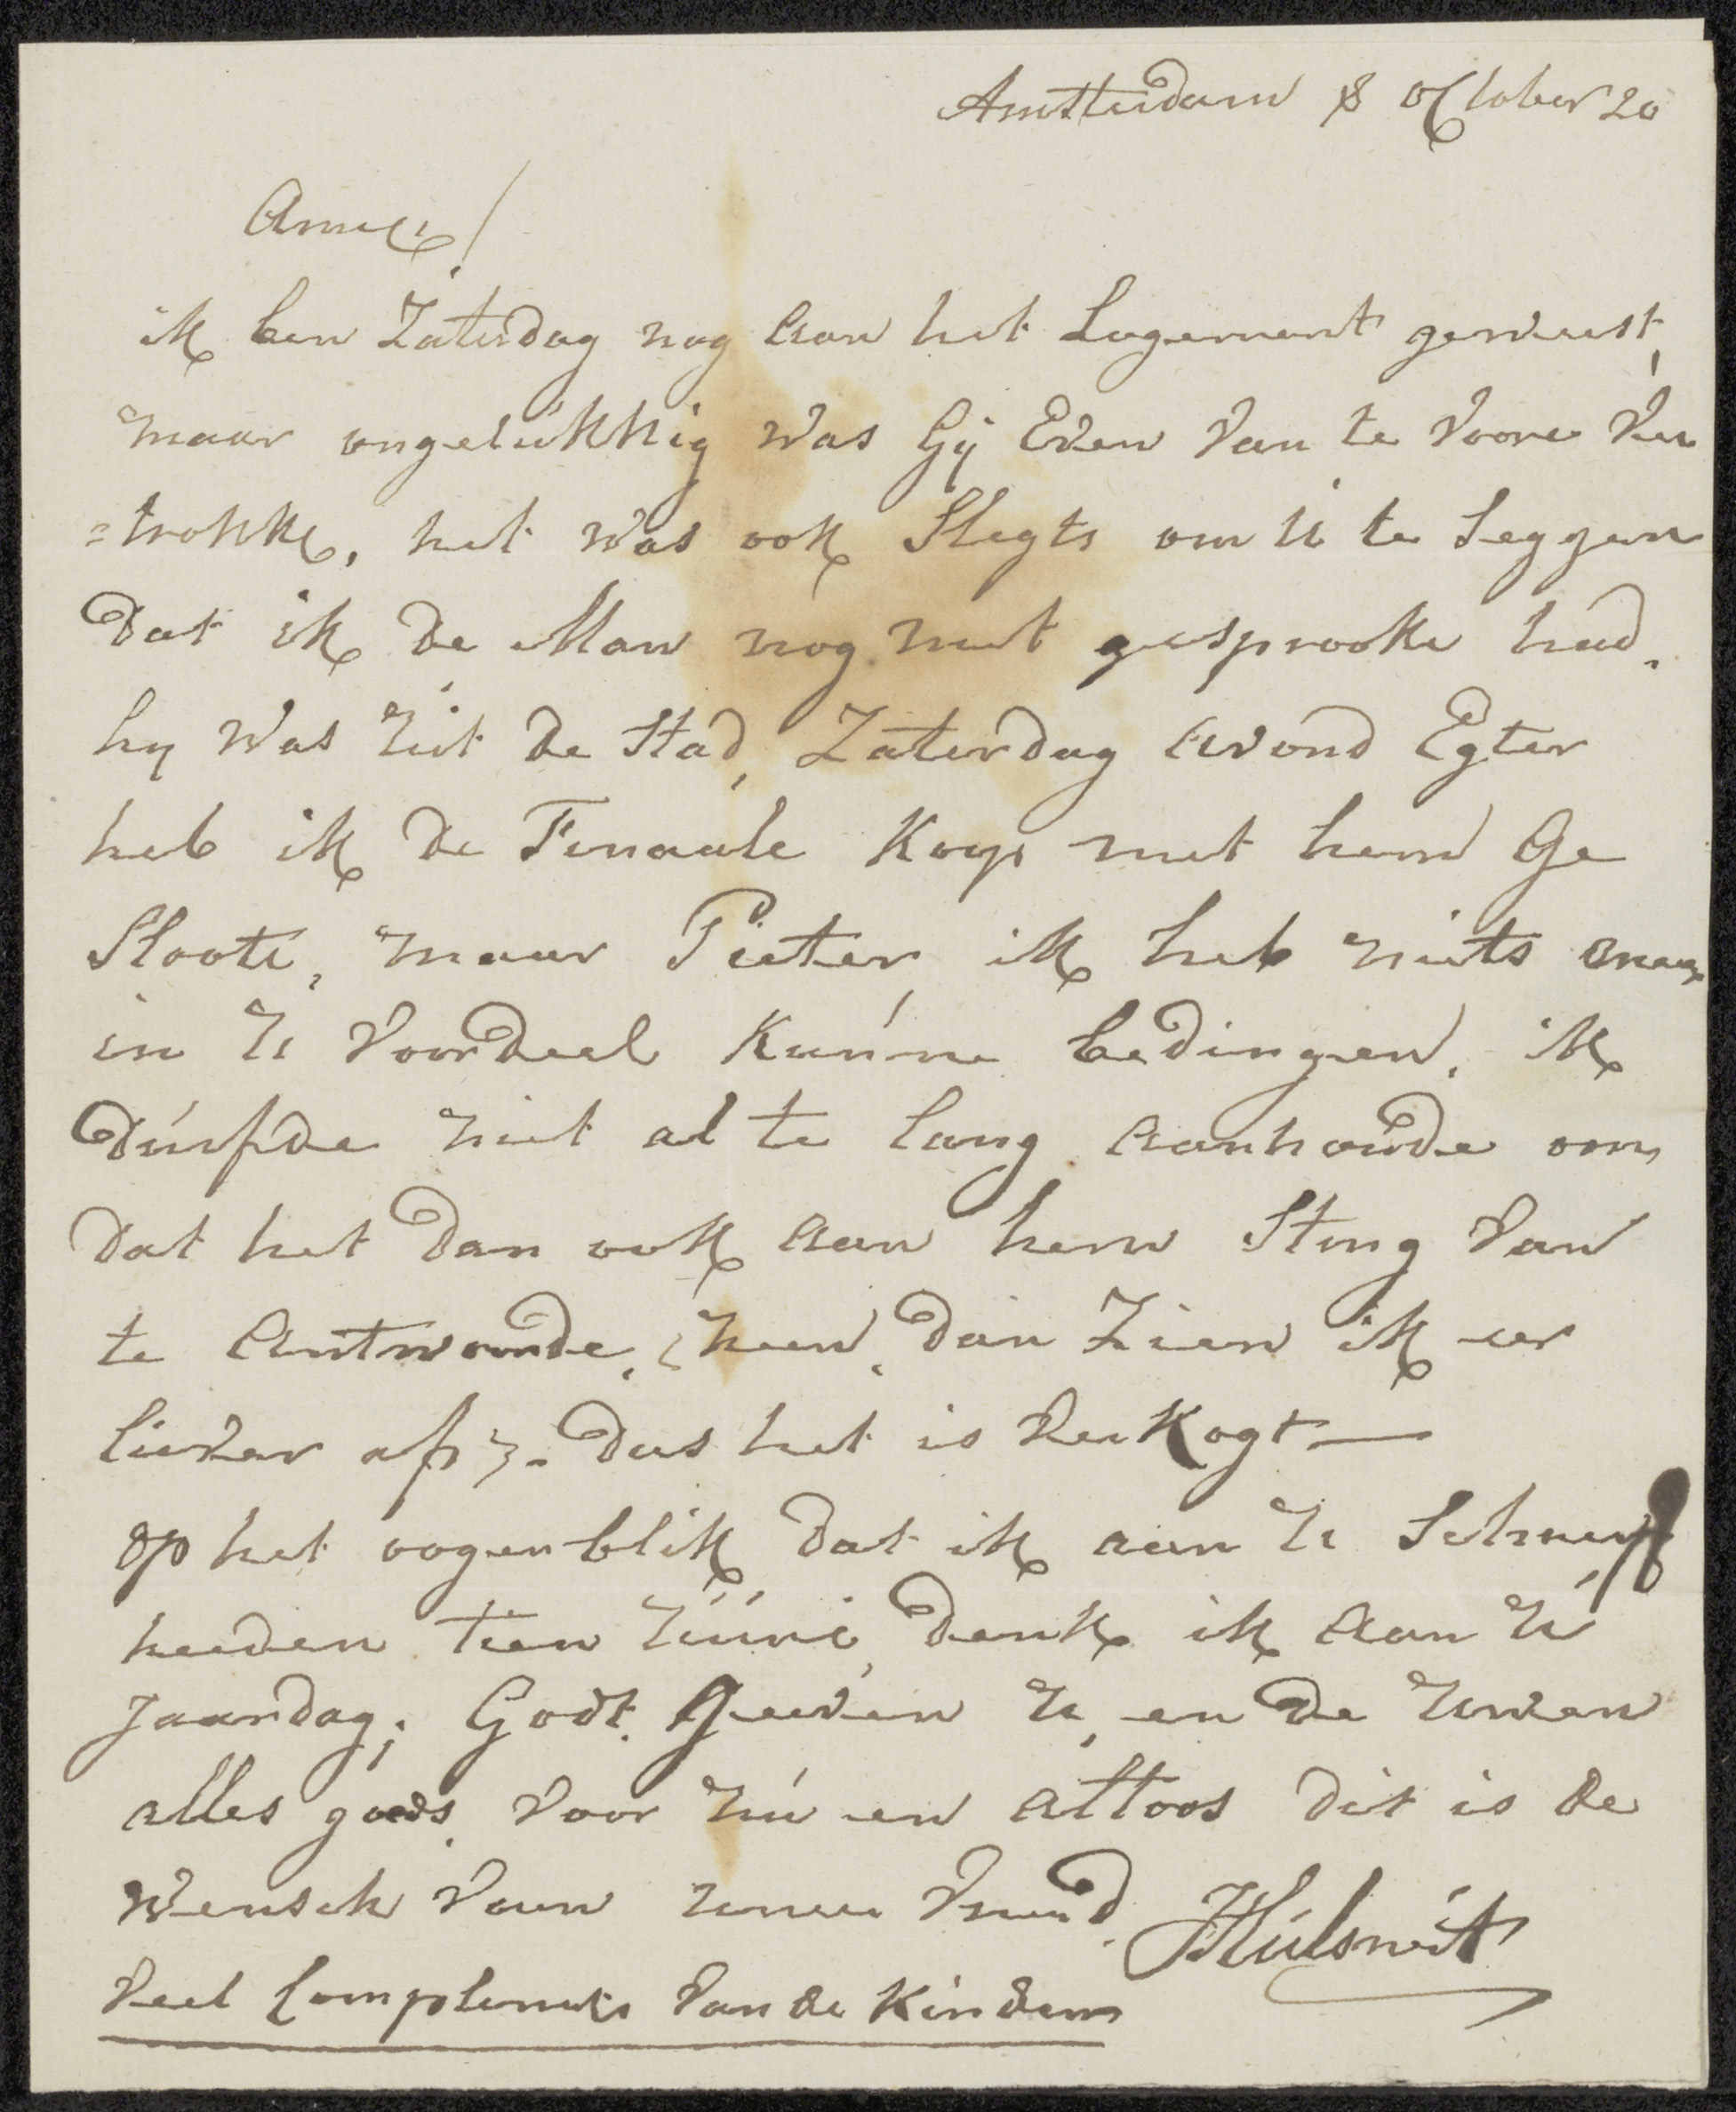 Amsterdam 8 October 20
Amice!
ik ben Zaterdag nog aan het Logement geweest,
maar ongelukkig was Gij Even van te voore ver
=trokke, het was ook Slegts om U te Seggen
dat ik de Man nog niet gesprooke had,
hy was Uit de Stad, Zaterdag avond Egter
heb ik de Finaale Koop met hem Ge
Sloote, maar Pieter, ik heb niets meer
in U Voordeel Kunne bedingen, ik
durfde niet al te lang aanhoude om
dat het dan ook aan hem Sting van
te Antwoorde, neen, dan Zien ik er
liever af. dus het is verKogt —
op het oogenblik dat ik aan U Schreyf
heeden tien Uure, denk ik aan U
Jaardag; Godt Geeven U, en de Uwen
alles goeds voor nu en altoos dit is de
wensch van uwen vriend
JHulswit
Veel Complements van de Kinderen